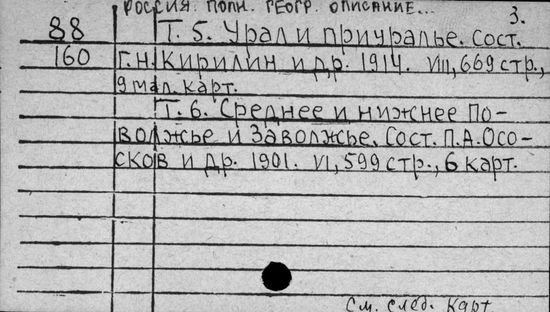 РОССИЯ. ПОЛН. ГЕОГР. ОПИСАНИЕ... 3.
88 Т. 5. Урал и приуралье. Сост.
160 Г.Н. Кирилин и др. 1914. VIII, 669 стр.,
9 мал. карт.
Т. 6. Среднее и нижнее По-
волжье и Заволжье. Сост. П.А. Осо-
сков и др. 1901. VI, 599 стр., 6 карт.
См. след. карт